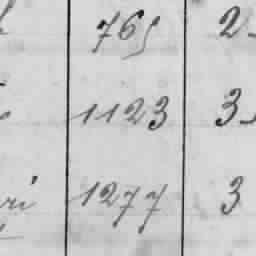 765 2
1123 3
ri 1277 3